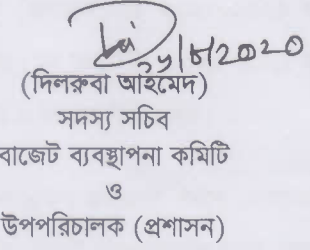 (দিলরুবা আহমেদ)
সদস্য সচিব
বাজেট ব্যবস্থাপনা কমিটি
ও
উপপরিচালক (প্রশাসন)